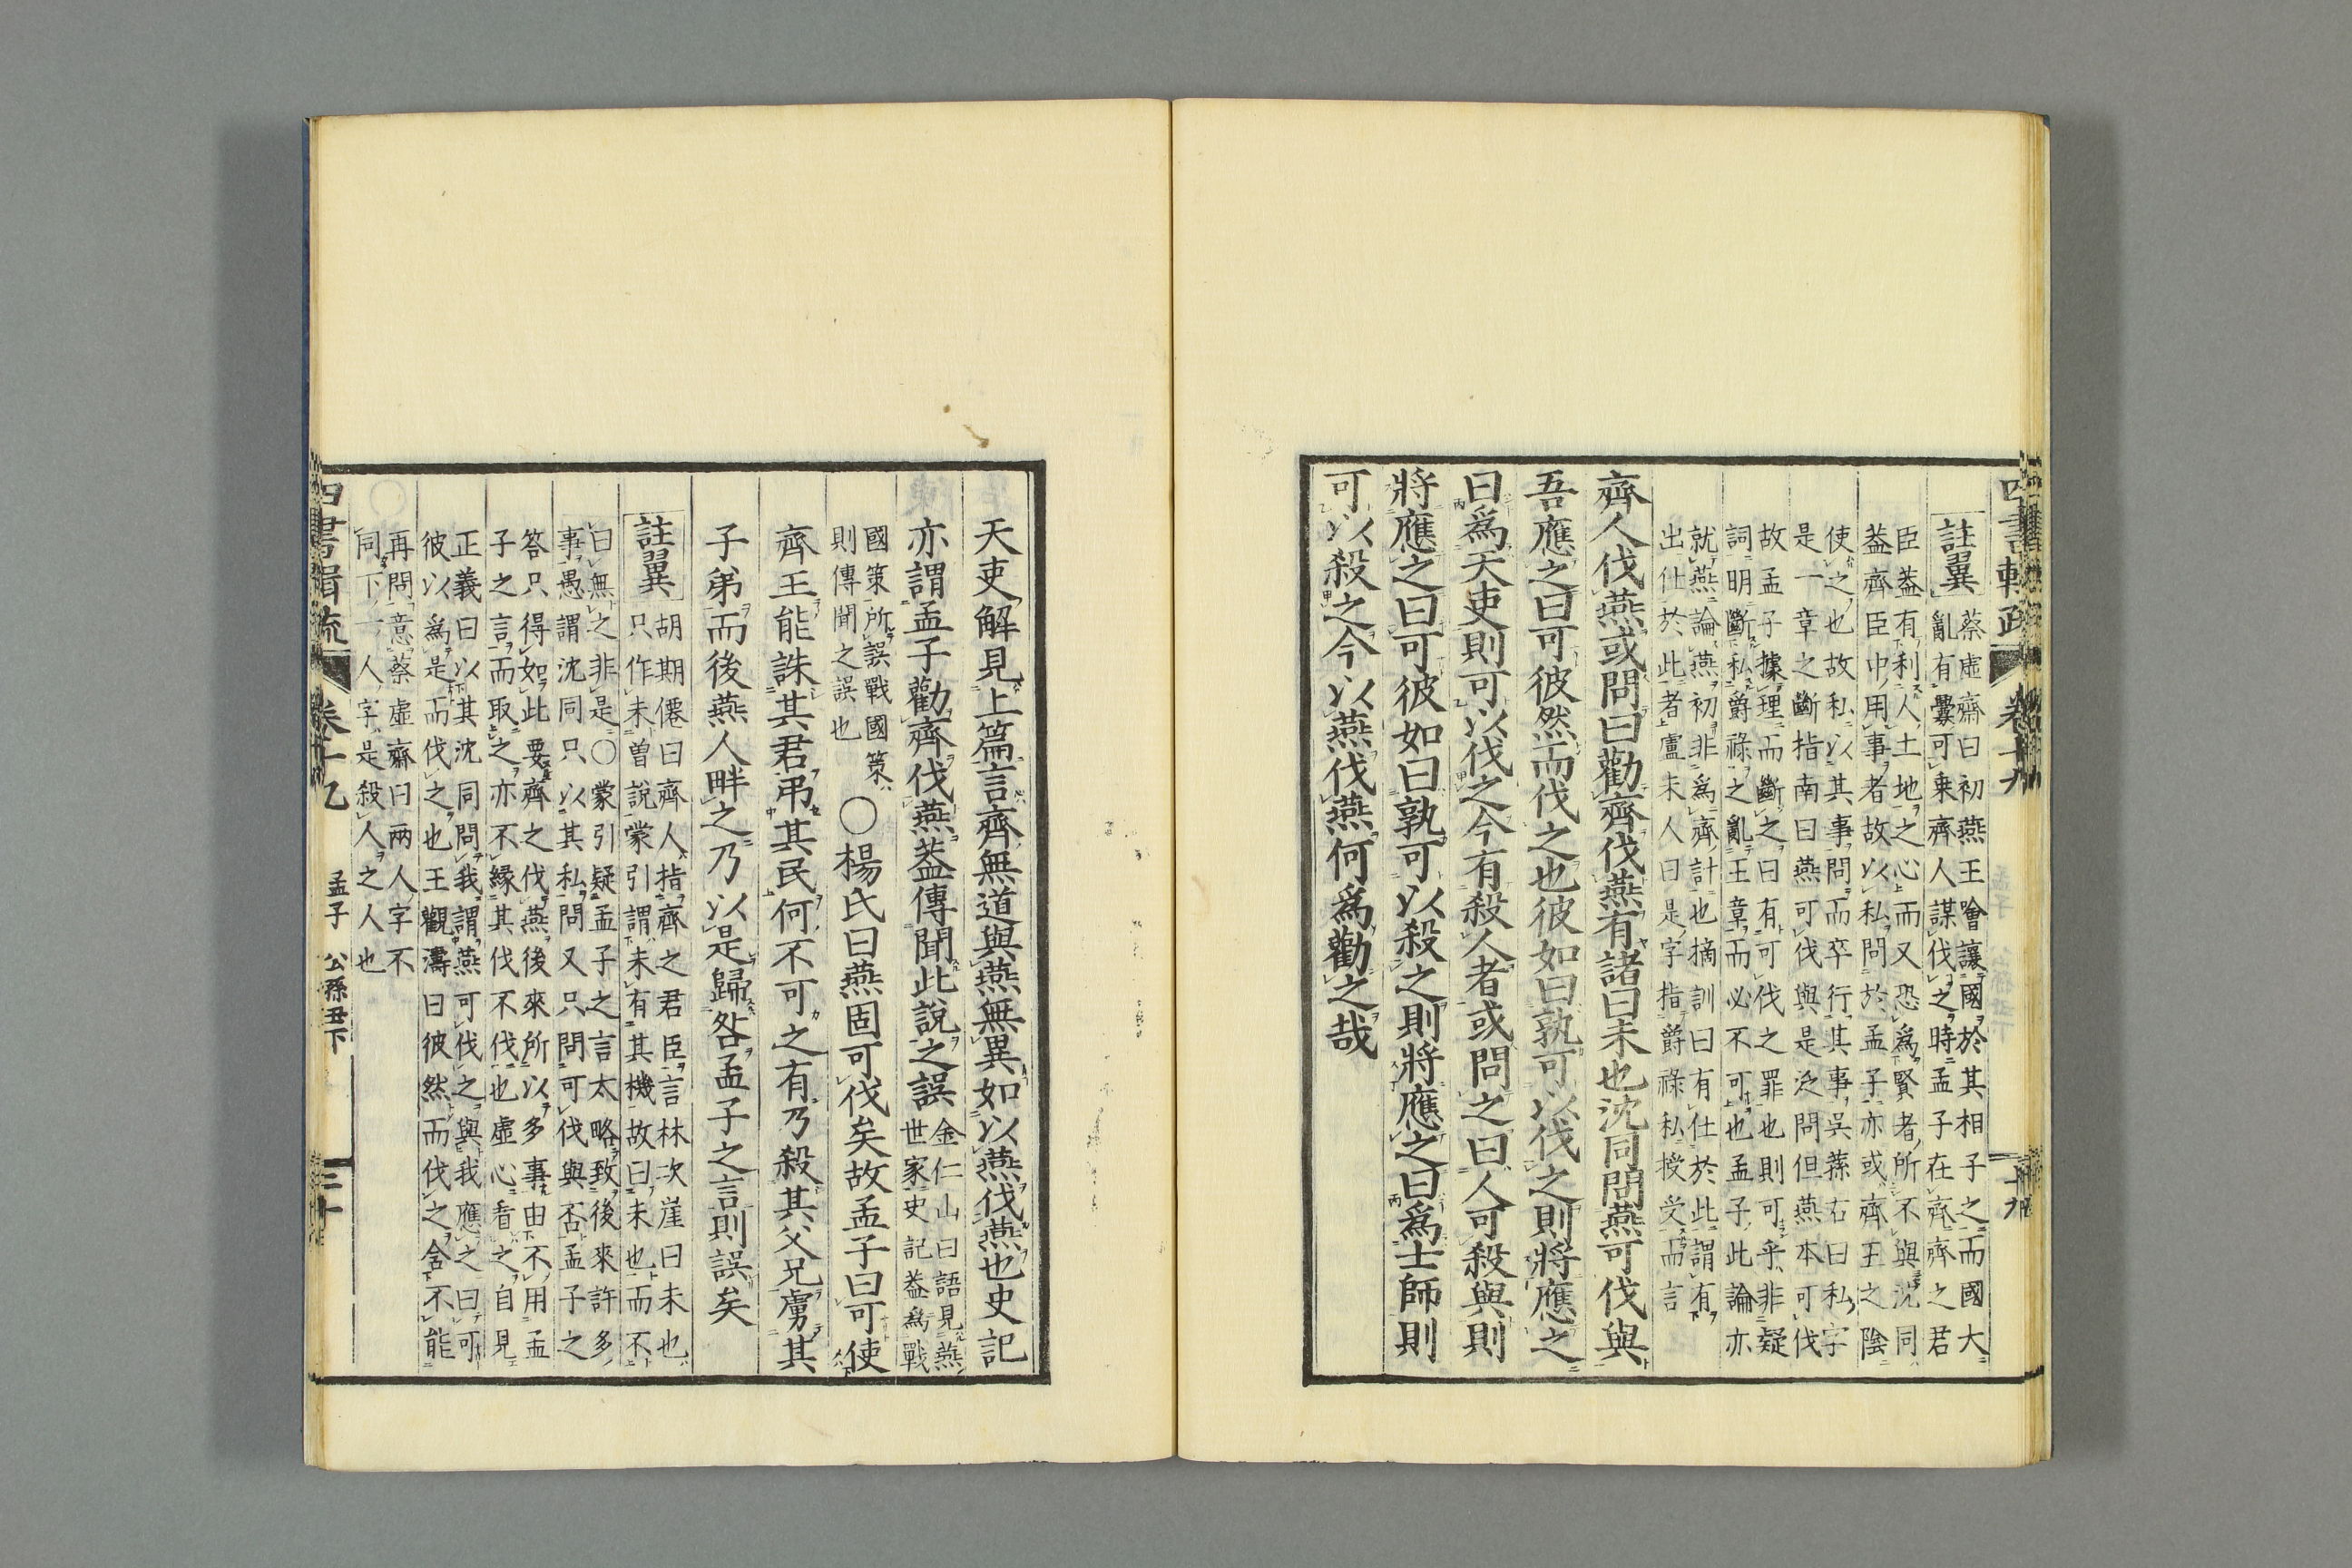 註翼
蔡虛齋曰初燕王噲讓國於其相子之而國大
亂有釁可乗齊人謀伐之時孟子在齊齊之君
臣葢有利人土地之心而又恐為賢者所不與沈同
葢齊臣中用事者故以私問於孟子亦或齊王之陰
使之也故私以其事問而卒行其事吳蓀右曰私字
是一章之斷指南曰燕可伐與是泛問但燕本可伐
故孟子據理而斷之曰有可伐之罪也則可乎非疑
詞明斷私爵祿之亂王章而必不可也孟子此論亦
就燕論燕初非為齊計也摘訓曰有仕於此謂有
出仕於此者盧未人曰是字指爵祿私授受而言
齊人伐燕或問曰勸齊伐燕有諸曰未也沈同問燕可伐與
吾應之曰可彼然而伐之也彼如曰孰可以伐之則將應之
曰為天吏則可以伐之今有殺人者或問之曰人可殺與則
將應之曰可彼如曰孰可以殺之則將應之曰為士師則
可以殺之今以燕伐燕何為勸之哉
天吏解見上篇言齊無道與燕無異如以燕伐燕也史記
亦謂孟子勸齊伐燕葢傳聞此說之誤
金仁山曰語見燕
世家史記葢為戰
國策所誤戰國策
則傳聞之誤也
〇楊氏曰燕固可伐矣故孟子曰可使
齊王能誅其君弔其民何不可之有乃殺其父兄虜其
子弟而後燕人畔之乃以是歸咎孟子之言則誤矣
註翼
胡期僊曰齊人指齊之君臣言林次崖曰未也
只作未曽說蒙引謂未有其機故曰未也而不
曰無之非是〇蒙引疑孟子之言太略致後來許多
事愚謂沈同只以其私問又只問可伐與否孟子之
答只得如此要齊之伐燕後來所以多事由不用孟
子之言而取之亦不緣其伐不伐也虛心看之自見
正義曰以其沈同問我謂燕可伐之與我應之曰可
彼以為是而伐之也王觀濤曰彼然而伐之含不能
再問意蔡虛齋曰兩人字不
同下一人字是殺人之人也
孟子
公孫丑下